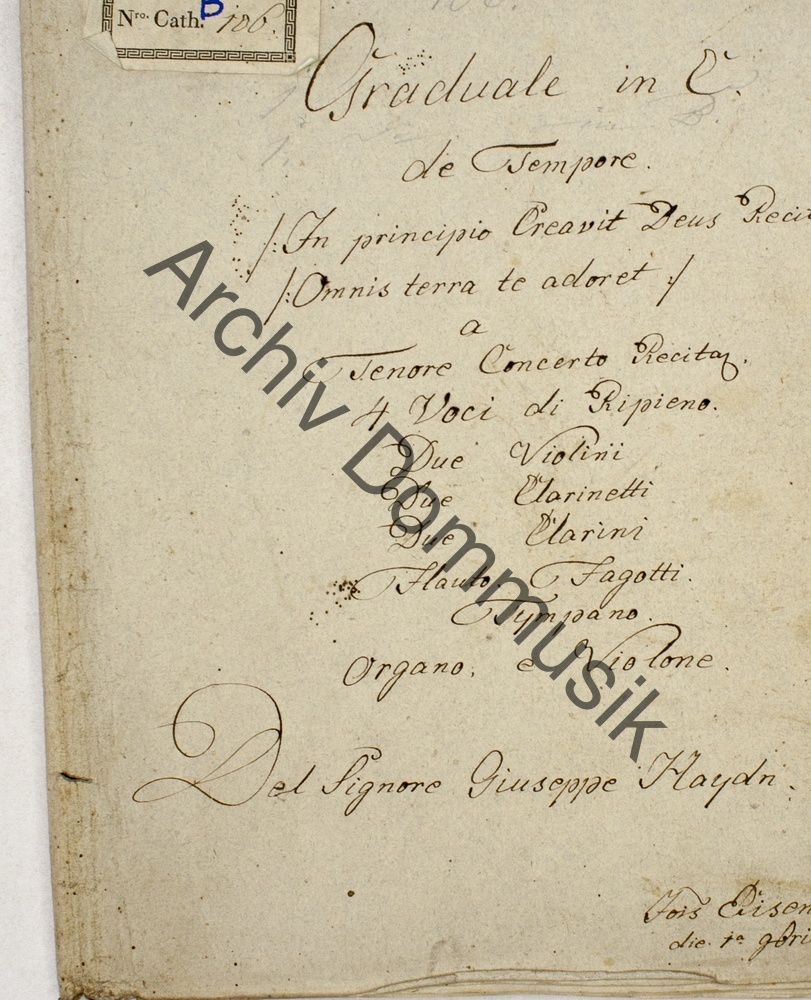 Nro. Cath. B 106.
Graduale in C.
de Tempore.
/: In principio Creavit Deus Recit
/: Omnis terra te adoret :/
a
Tenore Concerto Recita
4 Voci di Ripieno.
Due Violini
Due Clarinetti
Due Clarini
Flauto. Fagotti.
Tympano.
Organo, e Violone.
Del Signore Giuseppe Haydn.
die 1ª
Archiv Dommusik